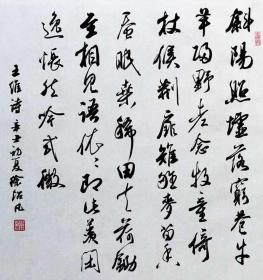 斜陽照墟落窮巷牛
羊歸野老念牧童倚
杖候荊扉雉雊麥苗秀
蚕眠桑葉稀田夫荷鋤
至相見語依依即此羨閑
逸悵然吟式微
王維詩辛丑初夏徐